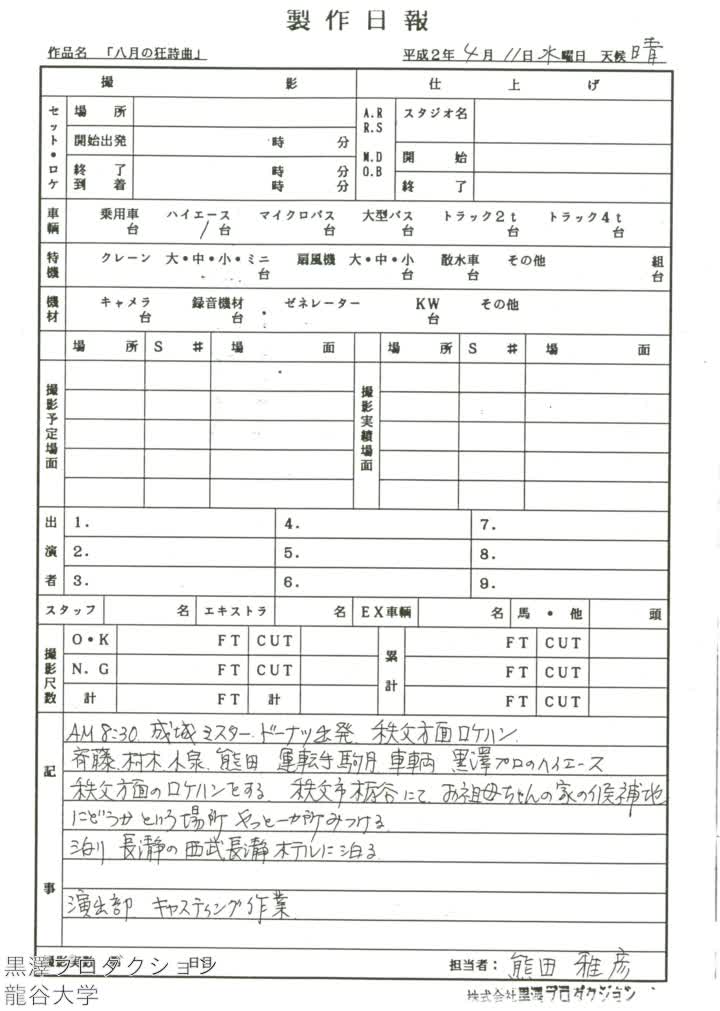 製作日報
作品名 「八月の狂詩曲」 平成2年4月11日水曜日 天候 晴
撮影 仕上げ
セット・ロケ 場所 A.R R.S スタジオ名
開始出発 時 分
M.D O.B 開始
終了 時 分
到着 時 分
終了
車輌 乗用車 台 ハイエース 1台 マイクロバス 台 大型バス 台 トラック2t 台 トラック4t 台
特機 クレーン 大・中・小・ミニ 台 扇風機 大・中・小 台 散水車 台 その他 組 台
機材 キャメラ 台 録音機材 台 ゼネレーター KW 台 その他
場所 S# 場面 場所 S# 場面
撮影予定場面 撮影実績場面
出演者
1. 4. 7.
2. 5. 8.
3. 6. 9.
スタッフ 名 エキストラ 名 EX車輌 名 馬・他 頭
撮影尺数 累計
O・K FT CUT FT CUT
N.G FT CUT FT CUT
計 FT 計 FT CUT
記事
AM8:30 成城ミスタードーナツ出発 秩父方面ロケハン
斉藤、村木、小泉、熊田 運転手 駒月 車輌 黒澤プロのハイエース
秩父方面のロケハンをする。秩父市栃谷にて、お祖母ちゃんの家の候補地
にどうかという場所 やっと一か所みつける
泊り 長瀞の西武長瀞ホテルに泊る
演出部 キャスティング作業
撮影実数 日目 担当者: 熊田 雅彦
株式会社黒澤プロダクション
黒澤プロダクション
龍谷大学